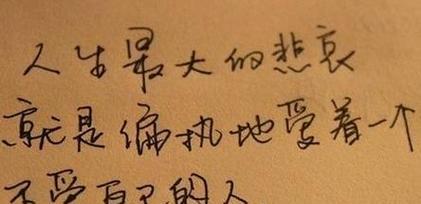 人生最大的悲哀
就是偏执地爱着一个
不爱自己的人